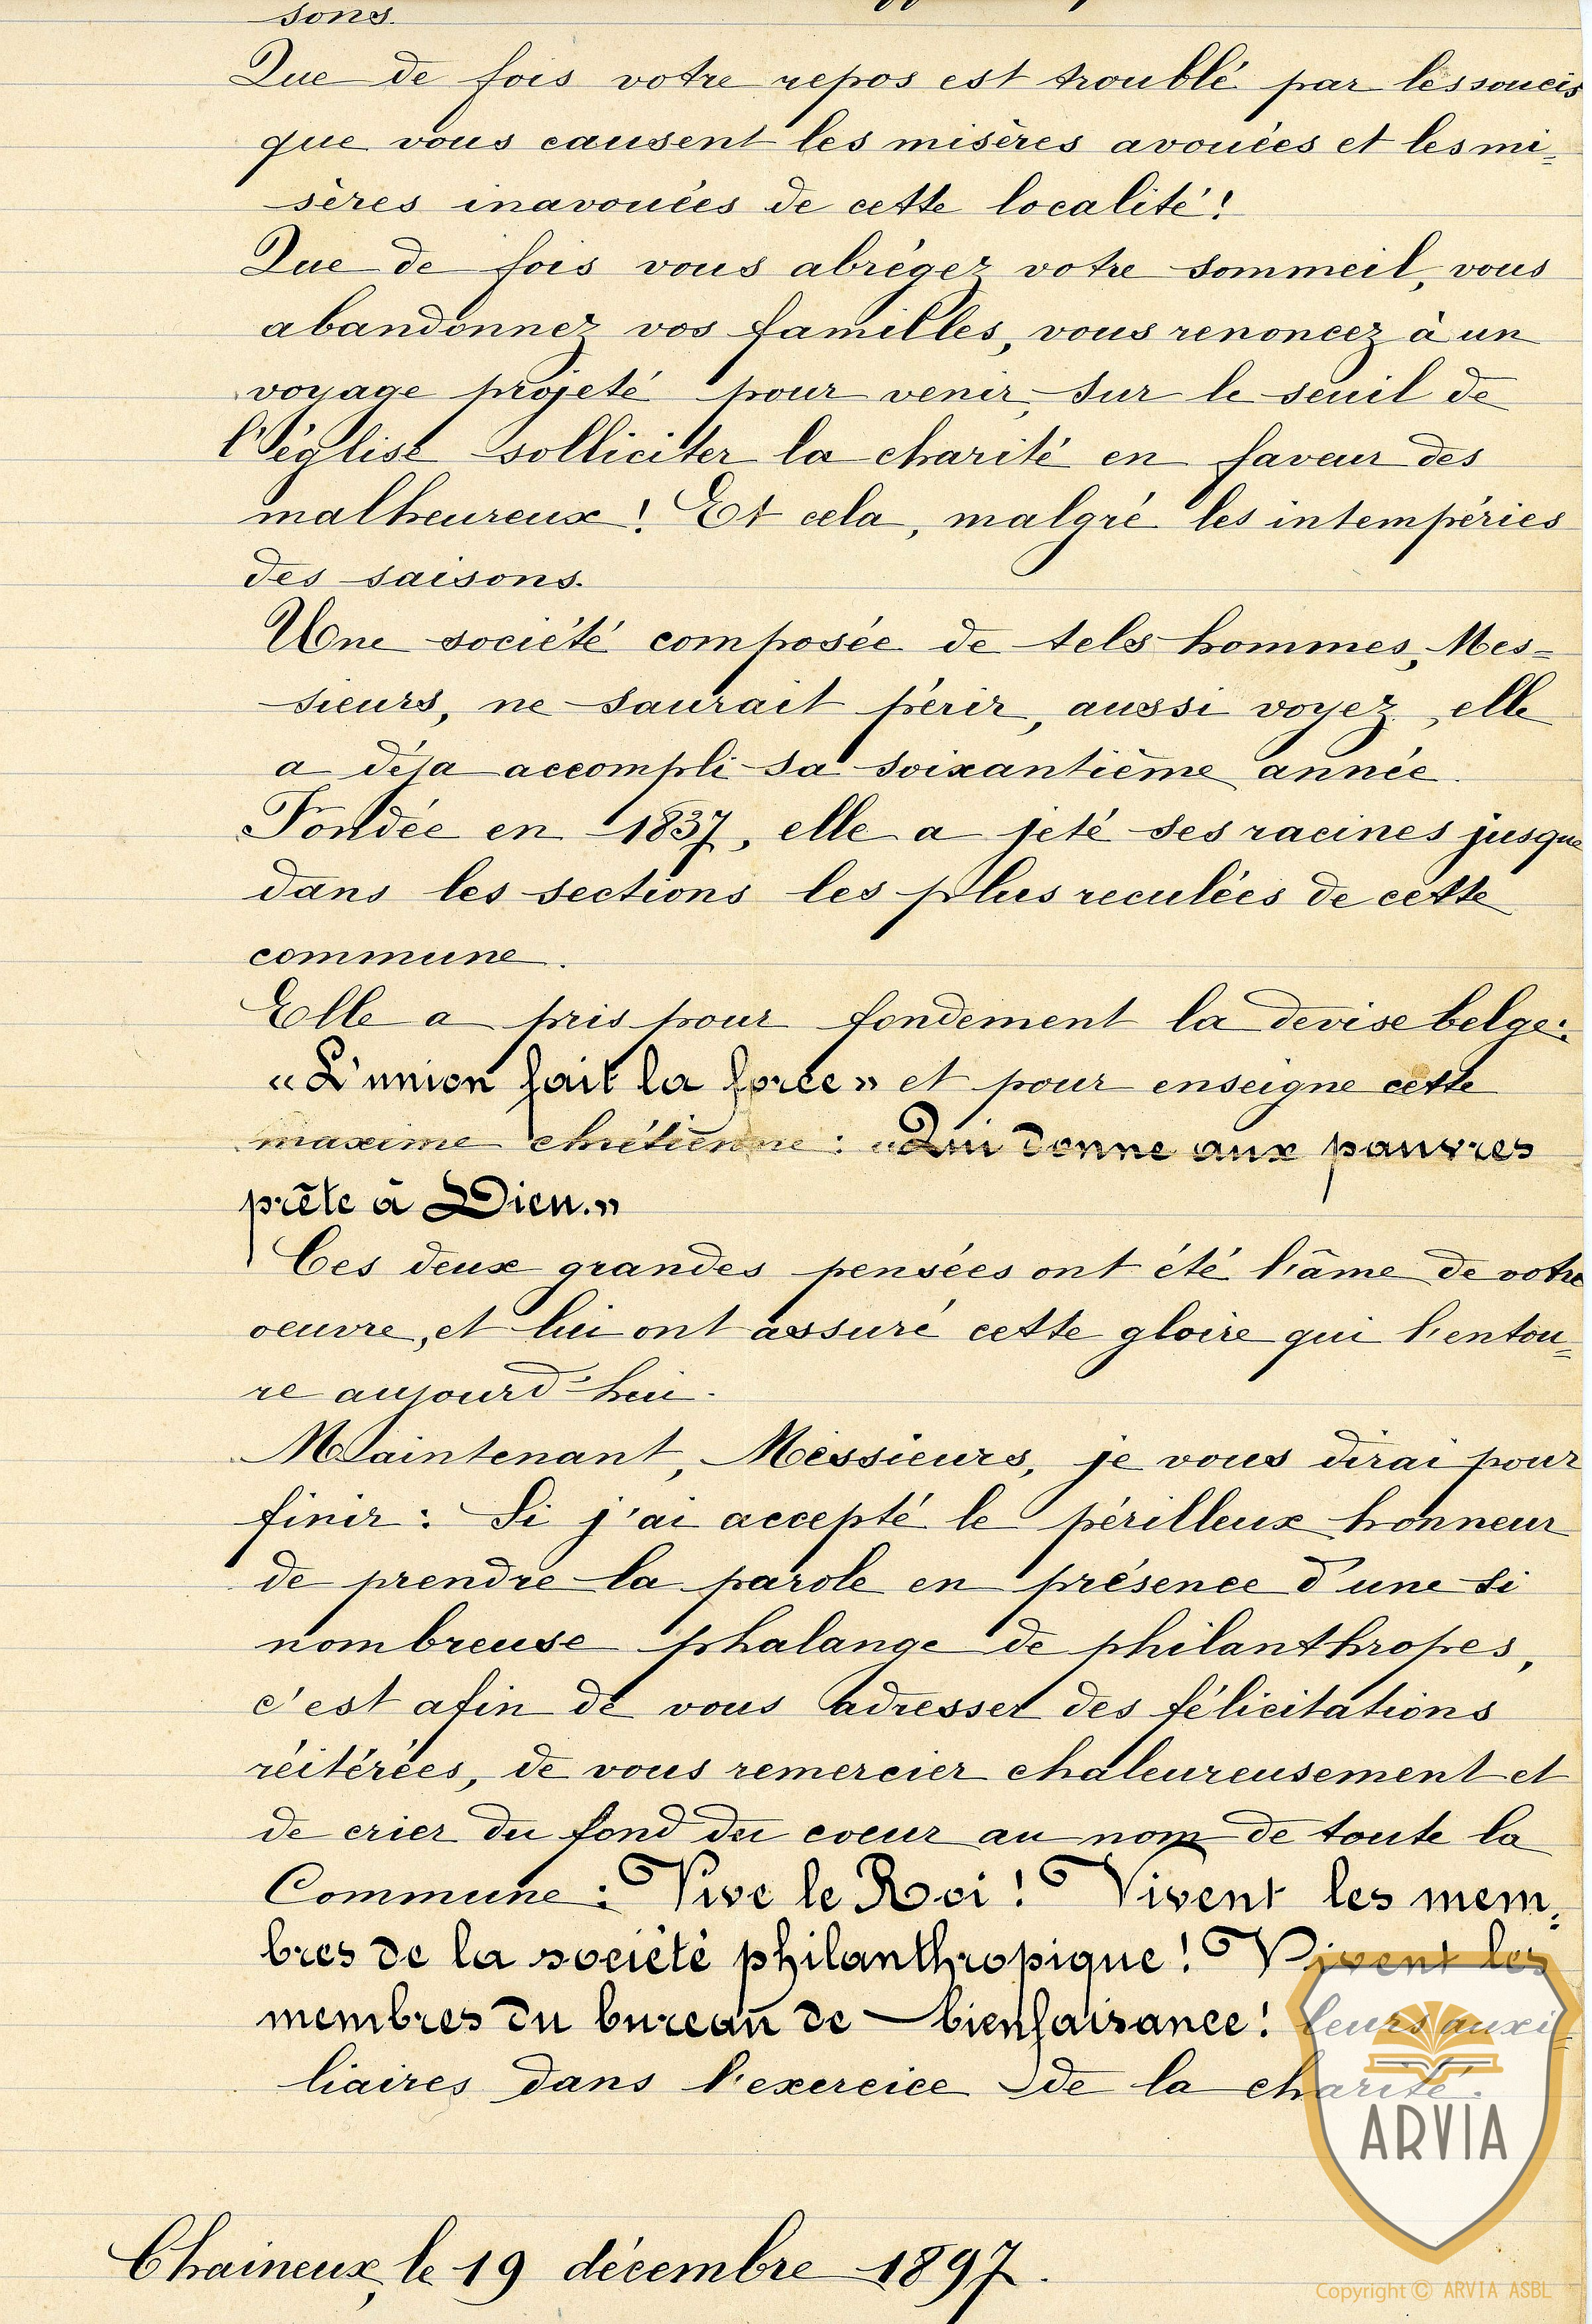 sons.
Que de fois votre repos est troublé par les soucis
que vous causent les misères avouées et les mi-
sères inavouées de cette localité!
Que de fois vous abrégez votre sommeil, vous
abandonnez vos familles, vous renoncez à un
voyage projeté pour venir, sur le seuil de
l'église solliciter la charité en faveur des
malheureux! Et cela, malgré les intempéries
des saisons.
Une société composée de tels hommes, Mes-
sieurs, ne saurait périr, aussi voyez, elle
a déja accompli sa soixantième année.
Fondée en 1837, elle a jeté ses racines jusque
dans les sections les plus reculées de cette
commune.
Elle a pris pour fondement la devise belge:
« L'union fait la force » et pour enseigne cette
maxime chrétienne : « Qui donne aux pauvres
prête à Dieu. »
Ces deux grandes pensées ont été l'âme de votre
oeuvre, et lui ont assuré cette gloire qui l'entou-
re aujourd'hui.
Maintenant, Messieurs, je vous dirai pour
finir : Si j'ai accepté le périlleux honneur
de prendre la parole en présence d'une si
nombreuse phalange de philanthropes,
c'est afin de vous adresser des félicitations
réitérées, de vous remercier chaleureusement et
de crier du fond du coeur au nom de toute la
Commune : Vive le Roi ! Vivent les mem-
bres de la société philanthropique ! Vivent les
membres du bureau de bienfaisance ! leurs auxi-
liaires dans l'exercice de la charité.
ARVIA
Chaineux, le 19 décembre 1897.
Copyright © ARVIA ASBL